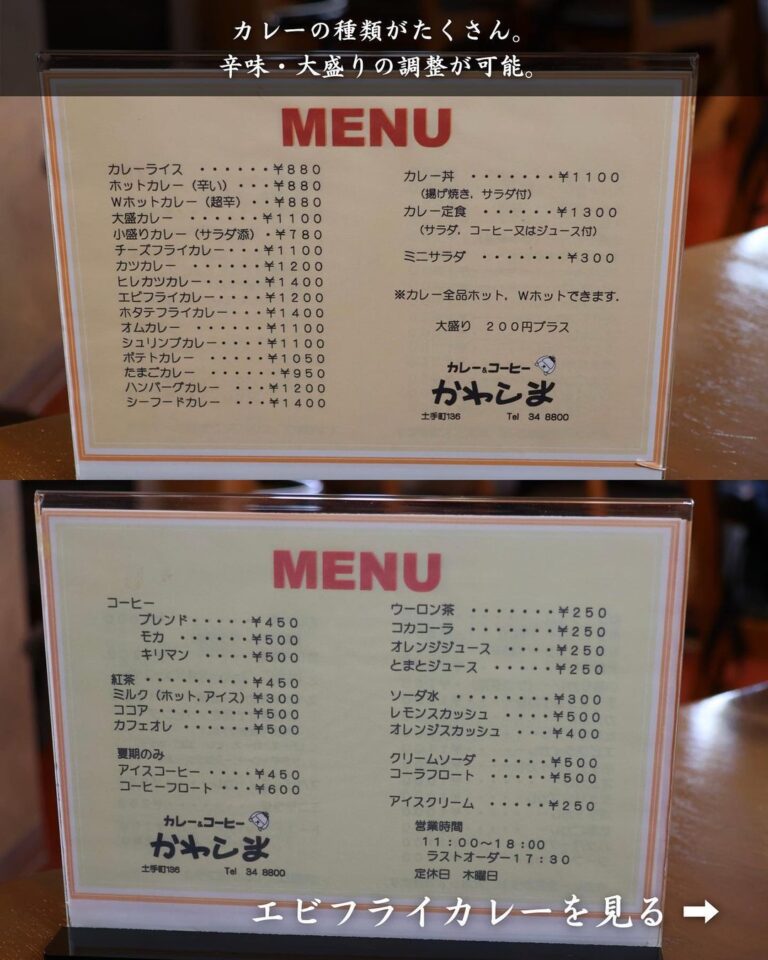 カレーの種類がたくさん。
辛味・大盛りの調整が可能。
MENU
カレーライス ・・・・・・¥880
ホットカレー（辛い）・・・¥880
Wホットカレー（超辛）・・¥880
大盛カレー ・・・・・¥1100
小盛りカレー（サラダ添）・¥780
チーズフライカレー・・・¥1100
カツカレー ・・・・・・¥1200
ヒレカツカレー・・・・・¥1400
エビフライカレー・・・・¥1200
ホタテフライカレー・・・¥1400
オムカレー ・・・・・¥1100
シュリンプカレー・・・・¥1100
ポテトカレー ・・・・・¥1050
たまごカレー ・・・・・・¥950
ハンバーグカレー ・・・¥1200
シーフードカレー ・・・¥1400
カレー丼 ・・・・・・・¥1100
（揚げ焼き，サラダ付）
カレー定食 ・・・・・・¥1300
（サラダ，コーヒー又はジュース付）
ミニサラダ ・・・・・・・¥300
※カレー全品ホット，Wホットできます．
大盛り 200円プラス
カレー&コーヒー
かわしま
土手町136 Tel 34 8800
MENU
コーヒー
ブレンド・・・・・¥450
モカ ・・・・・・¥500
キリマン ・・・・¥500
紅茶 ・・・・・・・・・¥450
ミルク（ホット，アイス）¥300
ココア ・・・・・・・・¥500
カフェオレ ・・・・・・¥500
夏期のみ
アイスコーヒー ・・・・¥450
コーヒーフロート ・・・¥600
カレー&コーヒー
かわしま
土手町136 Tel 34 8800
ウーロン茶 ・・・・・・・¥250
コカコーラ ・・・・・・・¥250
オレンジジュース ・・・・¥250
とまとジュース ・・・・・¥250
ソーダ水 ・・・・・・・・¥300
レモンスカッシュ ・・・・¥500
オレンジスカッシュ ・・・¥400
クリームソーダ ・・・・・¥500
コーラフロート ・・・・・¥500
アイスクリーム ・・・・・¥250
営業時間
11:00～18:00
ラストオーダー17:30
定休日 木曜日
エビフライカレーを見る ➡